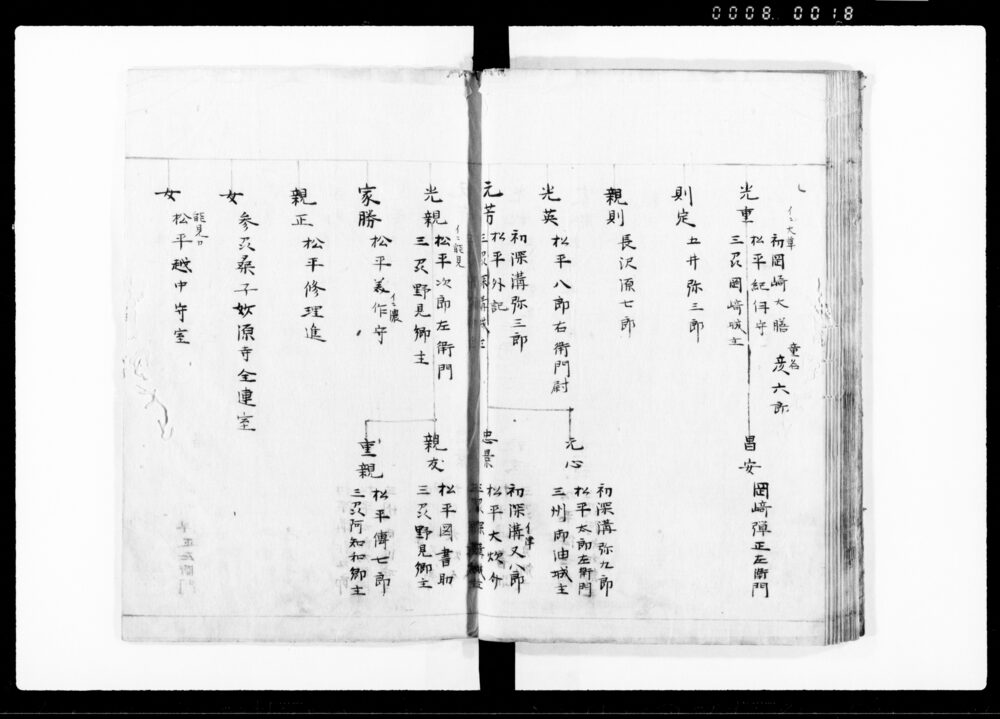 0008 0018
光重
イニ大草
初岡崎大膳
松平紀伊守
三刕岡崎城主
童名
彦六郎
昌安
岡崎弾正左衛門
則定
五井弥三郎
親則
長沢源七郎
光英
松平八郎右衛門尉
元芳
初深溝弥三郎
松平外記
三刕深溝城主
元心
初深溝弥九郎
松平太郎左衛門
三州御油城主
忠景
初深溝又八郎
松平大炊介
三刕深溝城主
光親
イニ能見
松平次郎左衛門
三刕野見郷主
親友
松平図書助
三刕野見郷主
重親
松平傳七郎
三刕阿知和郷主
家勝
松平美作守
イニ濃
親正
松平修理進
女
参刕桑子妙源寺全連室
女
能見
松平越中守室